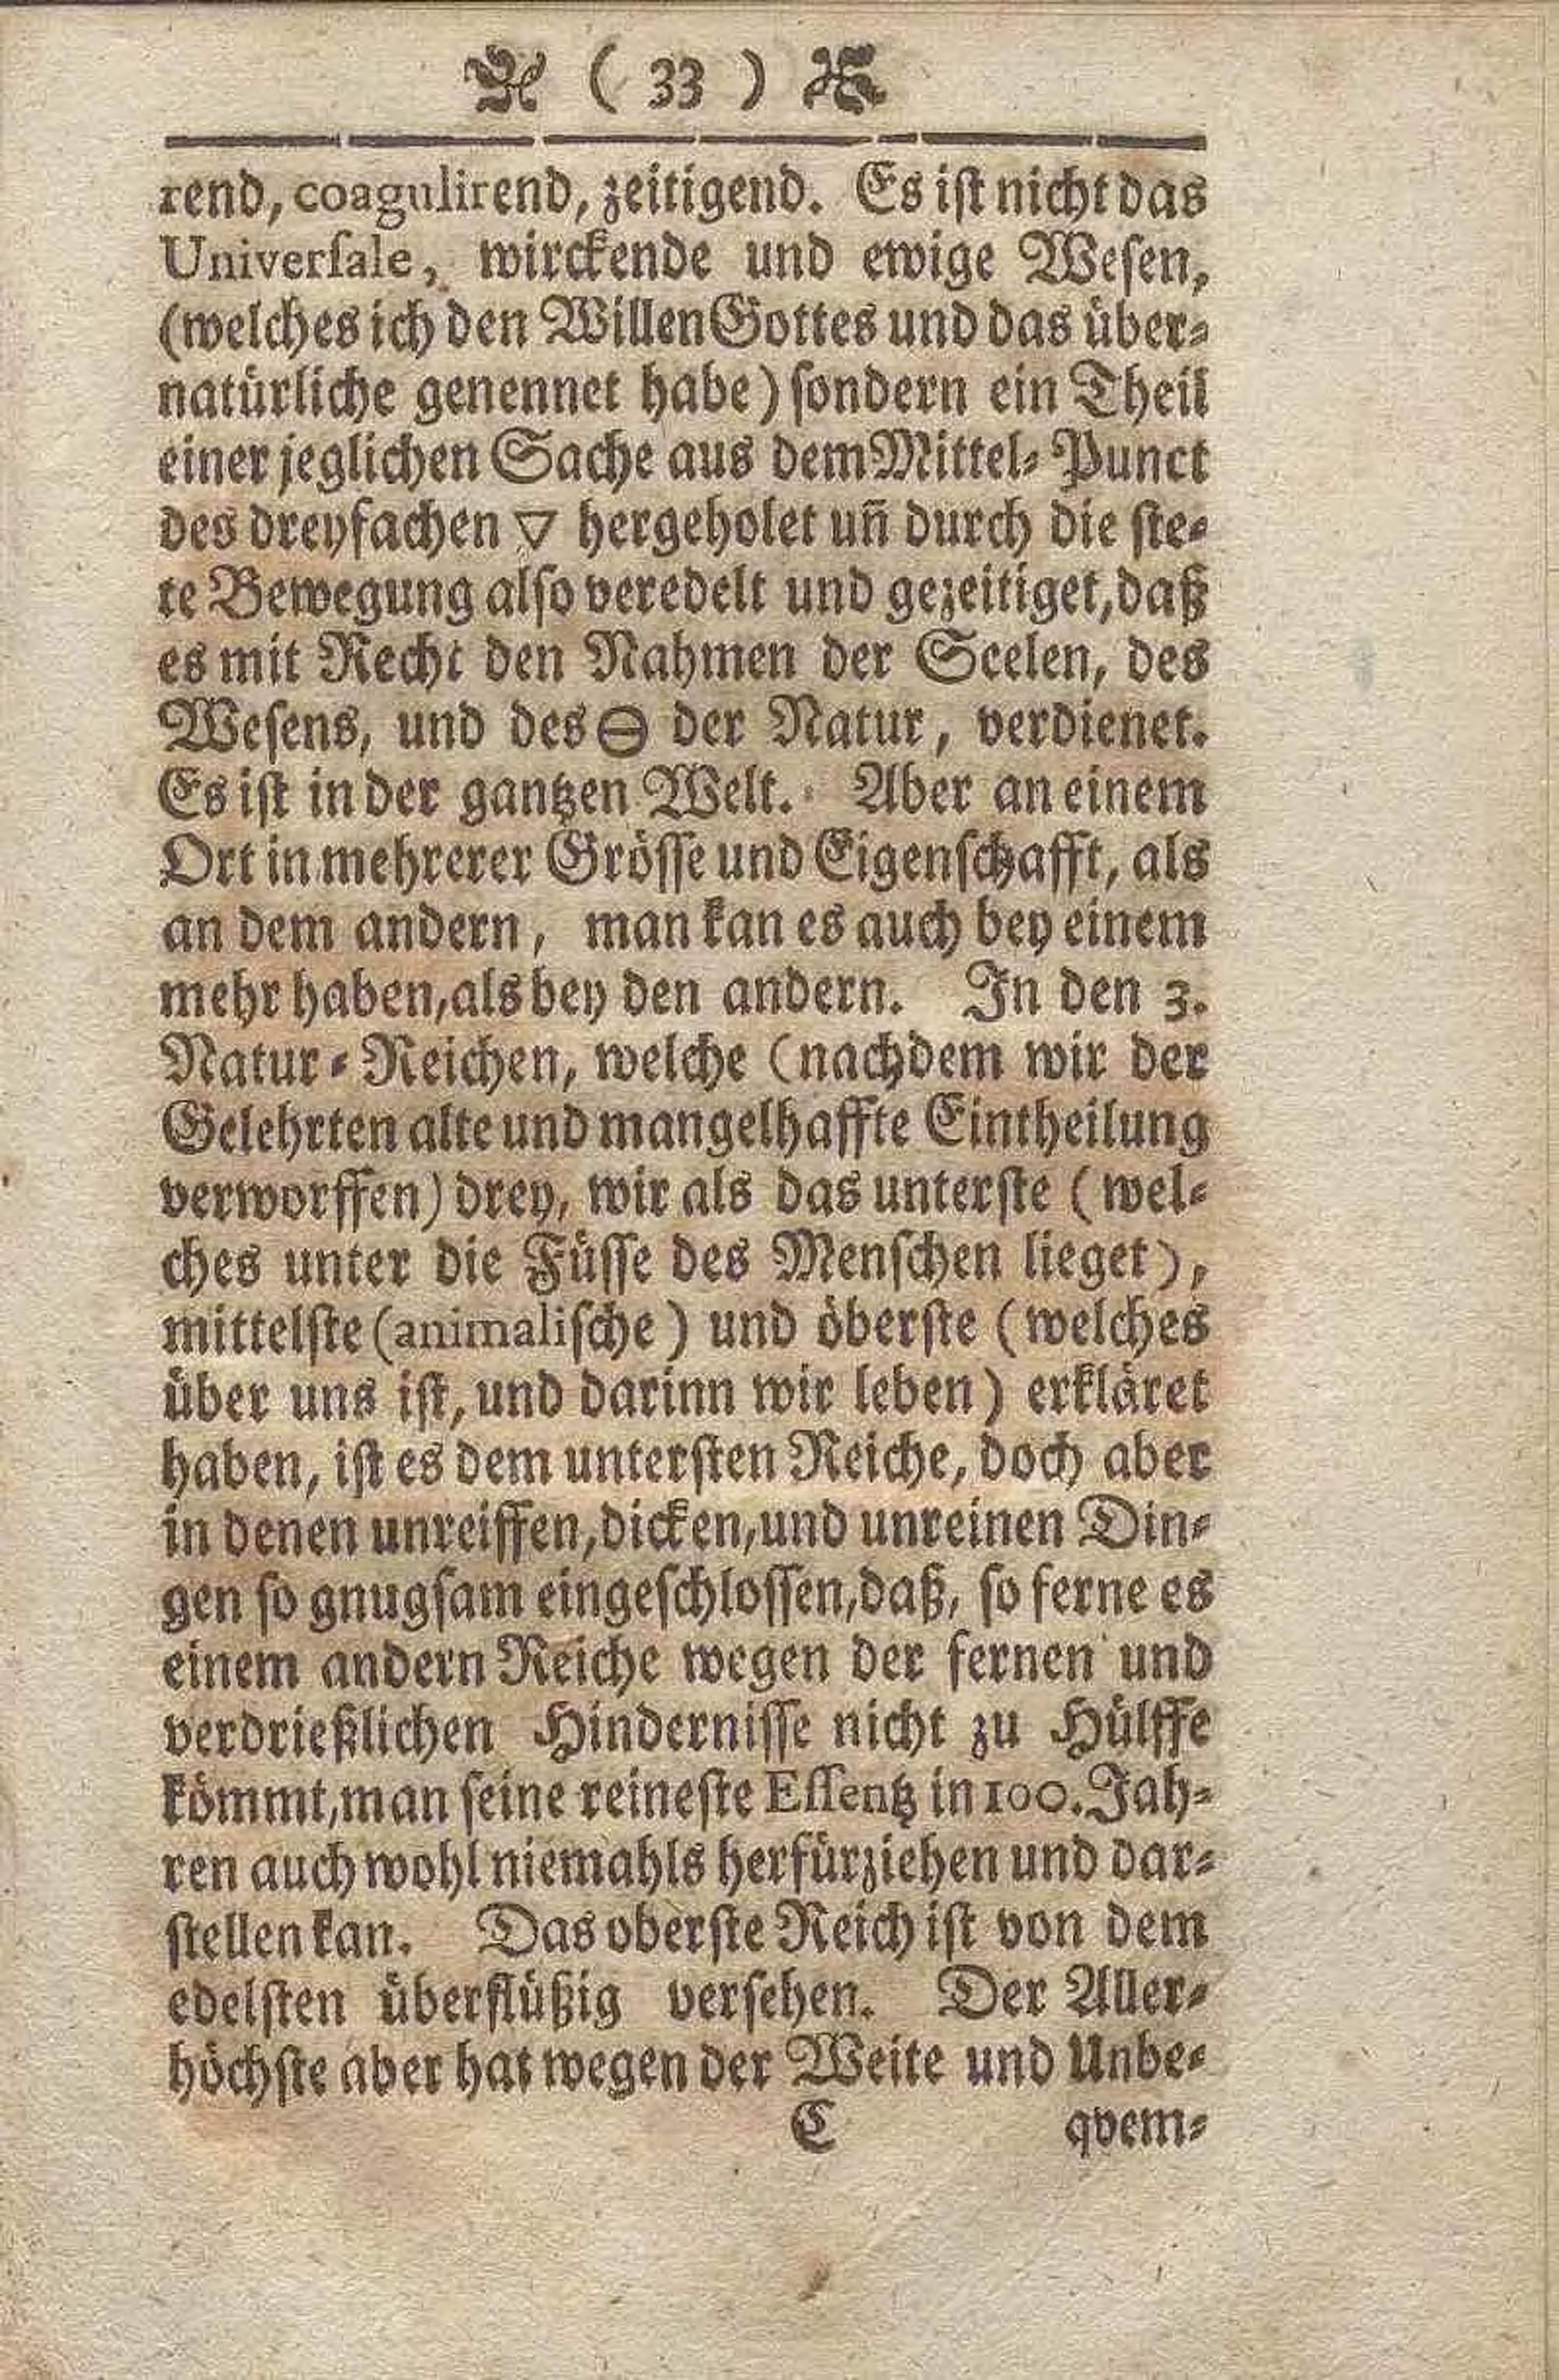 ( 33 )
rend, coagulirend, zeitigend. Es ist nicht das
Universale, wirckende und ewige Wesen,
(welches ich den Willen Gottes und das über-
natürliche genennet habe) sondern ein Theil
einer jeglichen Sache aus dem Mittel-Punct
des dreyfachen 🜄 hergeholet uñ durch die ste-
te Bewegung also veredelt und gezeitiget, daß
es mit Recht den Nahmen der Seelen, des
Wesens, und des 🜔 der Natur, verdienet.
Es ist in der gantzen Welt. Aber an einem
Ort in mehrerer Grösse und Eigenschafft, als
an dem andern, man kan es auch bey einem
mehr haben, als bey den andern. In den 3.
Natur-Reichen, welche (nachdem wir der
Gelehrten alte und mangelhaffte Eintheilung
verworffen) drey, wir als das unterste (wel-
ches unter die Füsse des Menschen lieget),
mittelste (animalische) und öberste (welches
über uns ist, und darinn wir leben) erkläret
haben, ist es dem untersten Reiche, doch aber
in denen unreiffen, dicken, und unreinen Din-
gen so gnugsam eingeschlossen, daß, so ferne es
einem andern Reiche wegen der fernen und
verdrießlichen Hindernisse nicht zu Hülffe
kömmt, man seine reineste Essentz in 100. Jah-
ren auch wohl niemahls herfürziehen und dar-
stellen kan. Das oberste Reich ist von dem
edelsten überflüßig versehen. Der Aller-
höchste aber hat wegen der Weite und Unbe-
C qvem-